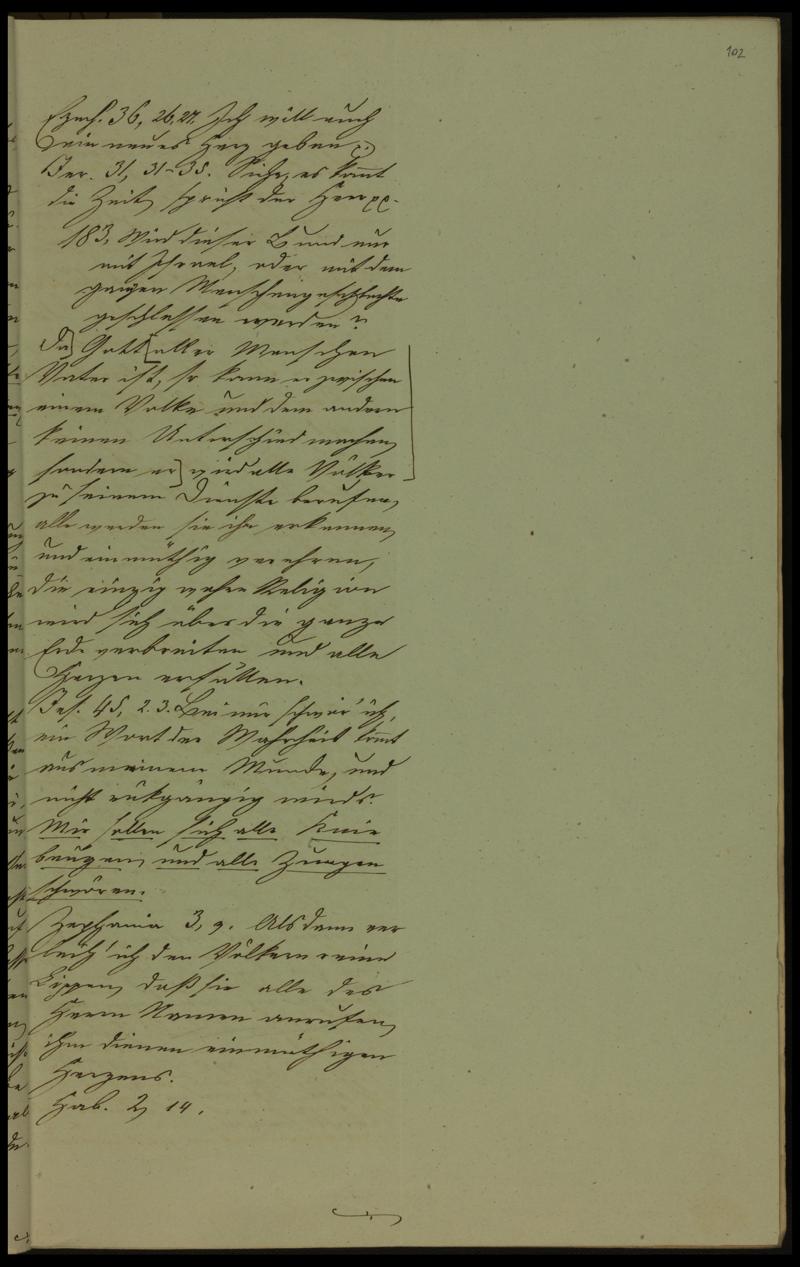 102
Ezech. 36, 26, 27. Ich will euch
ein neues Herz geben pp
Jer. 31, 31-35. Siehe, es kom̅t
die Zeit, spricht der Herr pp.
183. Wird dieser Bund nur
mit Israel, oder mit dem
ganzen Menschengeschlechte
geschlossen werden?
Da] Gott [aller Menschen
Vater ist, so kann er zwischen
einem Volke und dem andern
keinen Unterschied machen,
sondern er] wird alle Völker
zu seinem Dienste berufen,
alle werden sie ihn erkennen,
und einmüthig verehren,
die einzig wahre Religion
wird sich über die ganze
Erde verbreiten und alle
Herzen erfüllen.
Jes. 45, 2.3. Bei mir schwör' ich,
ein Wort der Wahrheit kom̅t
aus meinem Munde, und
nicht rükgängig wirds:
Mir sollen sich alle Knie
beugen, und alle Zungen
schwören.
Zephania 3, 9. Alsdann ver
leih' ich den Völkern reine
Lippen, daß sie alle des
Herrn Namen anrufen,
ihm dienen einmüthigen
Herzens.
Hab. 2, 14.